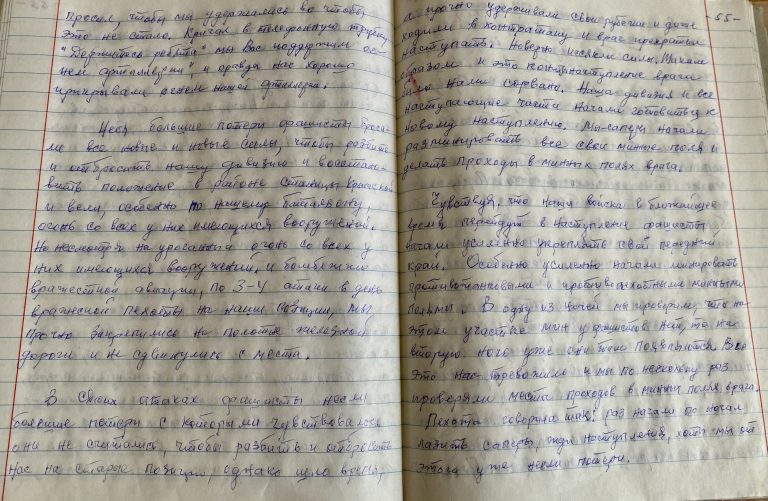 Просил, чтобы мы удержались во чтобы
это не стало. Кричал в телефонную трубку
"Держитесь ребята" мы вас поддержим ог-
нем артиллерии", и правда нас хорошо
прикрывали огнем нашей артиллерии.
Неся большие потери фашисты броса-
ли все новые и новые силы, чтобы разбить
и отбросить нашу дивизию и восстано-
вить положение в районе станицы
и вели, особенно по нашему батальону,
огонь со всех у них имеющихся вооружений.
Но несмотря на ураганный огонь со всех у
них имеющихся вооружений и бомбежки
вражеской авиации, по 3-4 атаки в день
вражеской пехоты на наши позиции, мы
прочно закрепились на полотне железной
дороги и не сдвинулись с места.
В своих атаках фашисты несли
большие потери с которыми чувствовалось
они не считались, чтобы разбить и отбросить
нас на старые позиции, однако шло время,
-55-
а прочно удерживали свои рубежи и даже
ходили в контратаку и враг прекратил
наступать. Наверно иссякли силы. Таким
образом и это контрнаступление врага
было нами сорвано. Наша дивизия и все
наступающие части начали готовиться к
новому наступлению. Мы-сапёры начали
разминировать все свои минные поля и
делать проходы в минных полях врага.
Чувствуя, что наши войска в ближайшее
время перейдут в наступление фашисты
начали усиленно укреплять свой передний
край. Особенно усиленно начали минировать
противотанковыми и противопехотными минными
полями. В одну из ночей мы проверяли, что на
этом участке мин у фашистов нет, то на
вторую ночь уже они там появляются. Все
это нас тревожило и мы по нескольку раз
проверяли места проходов в минных полях врага.
Пехота говорила так: раз начали по ночам
лазить саперы, жди наступления, хотя мы от
этого уже несли потери.